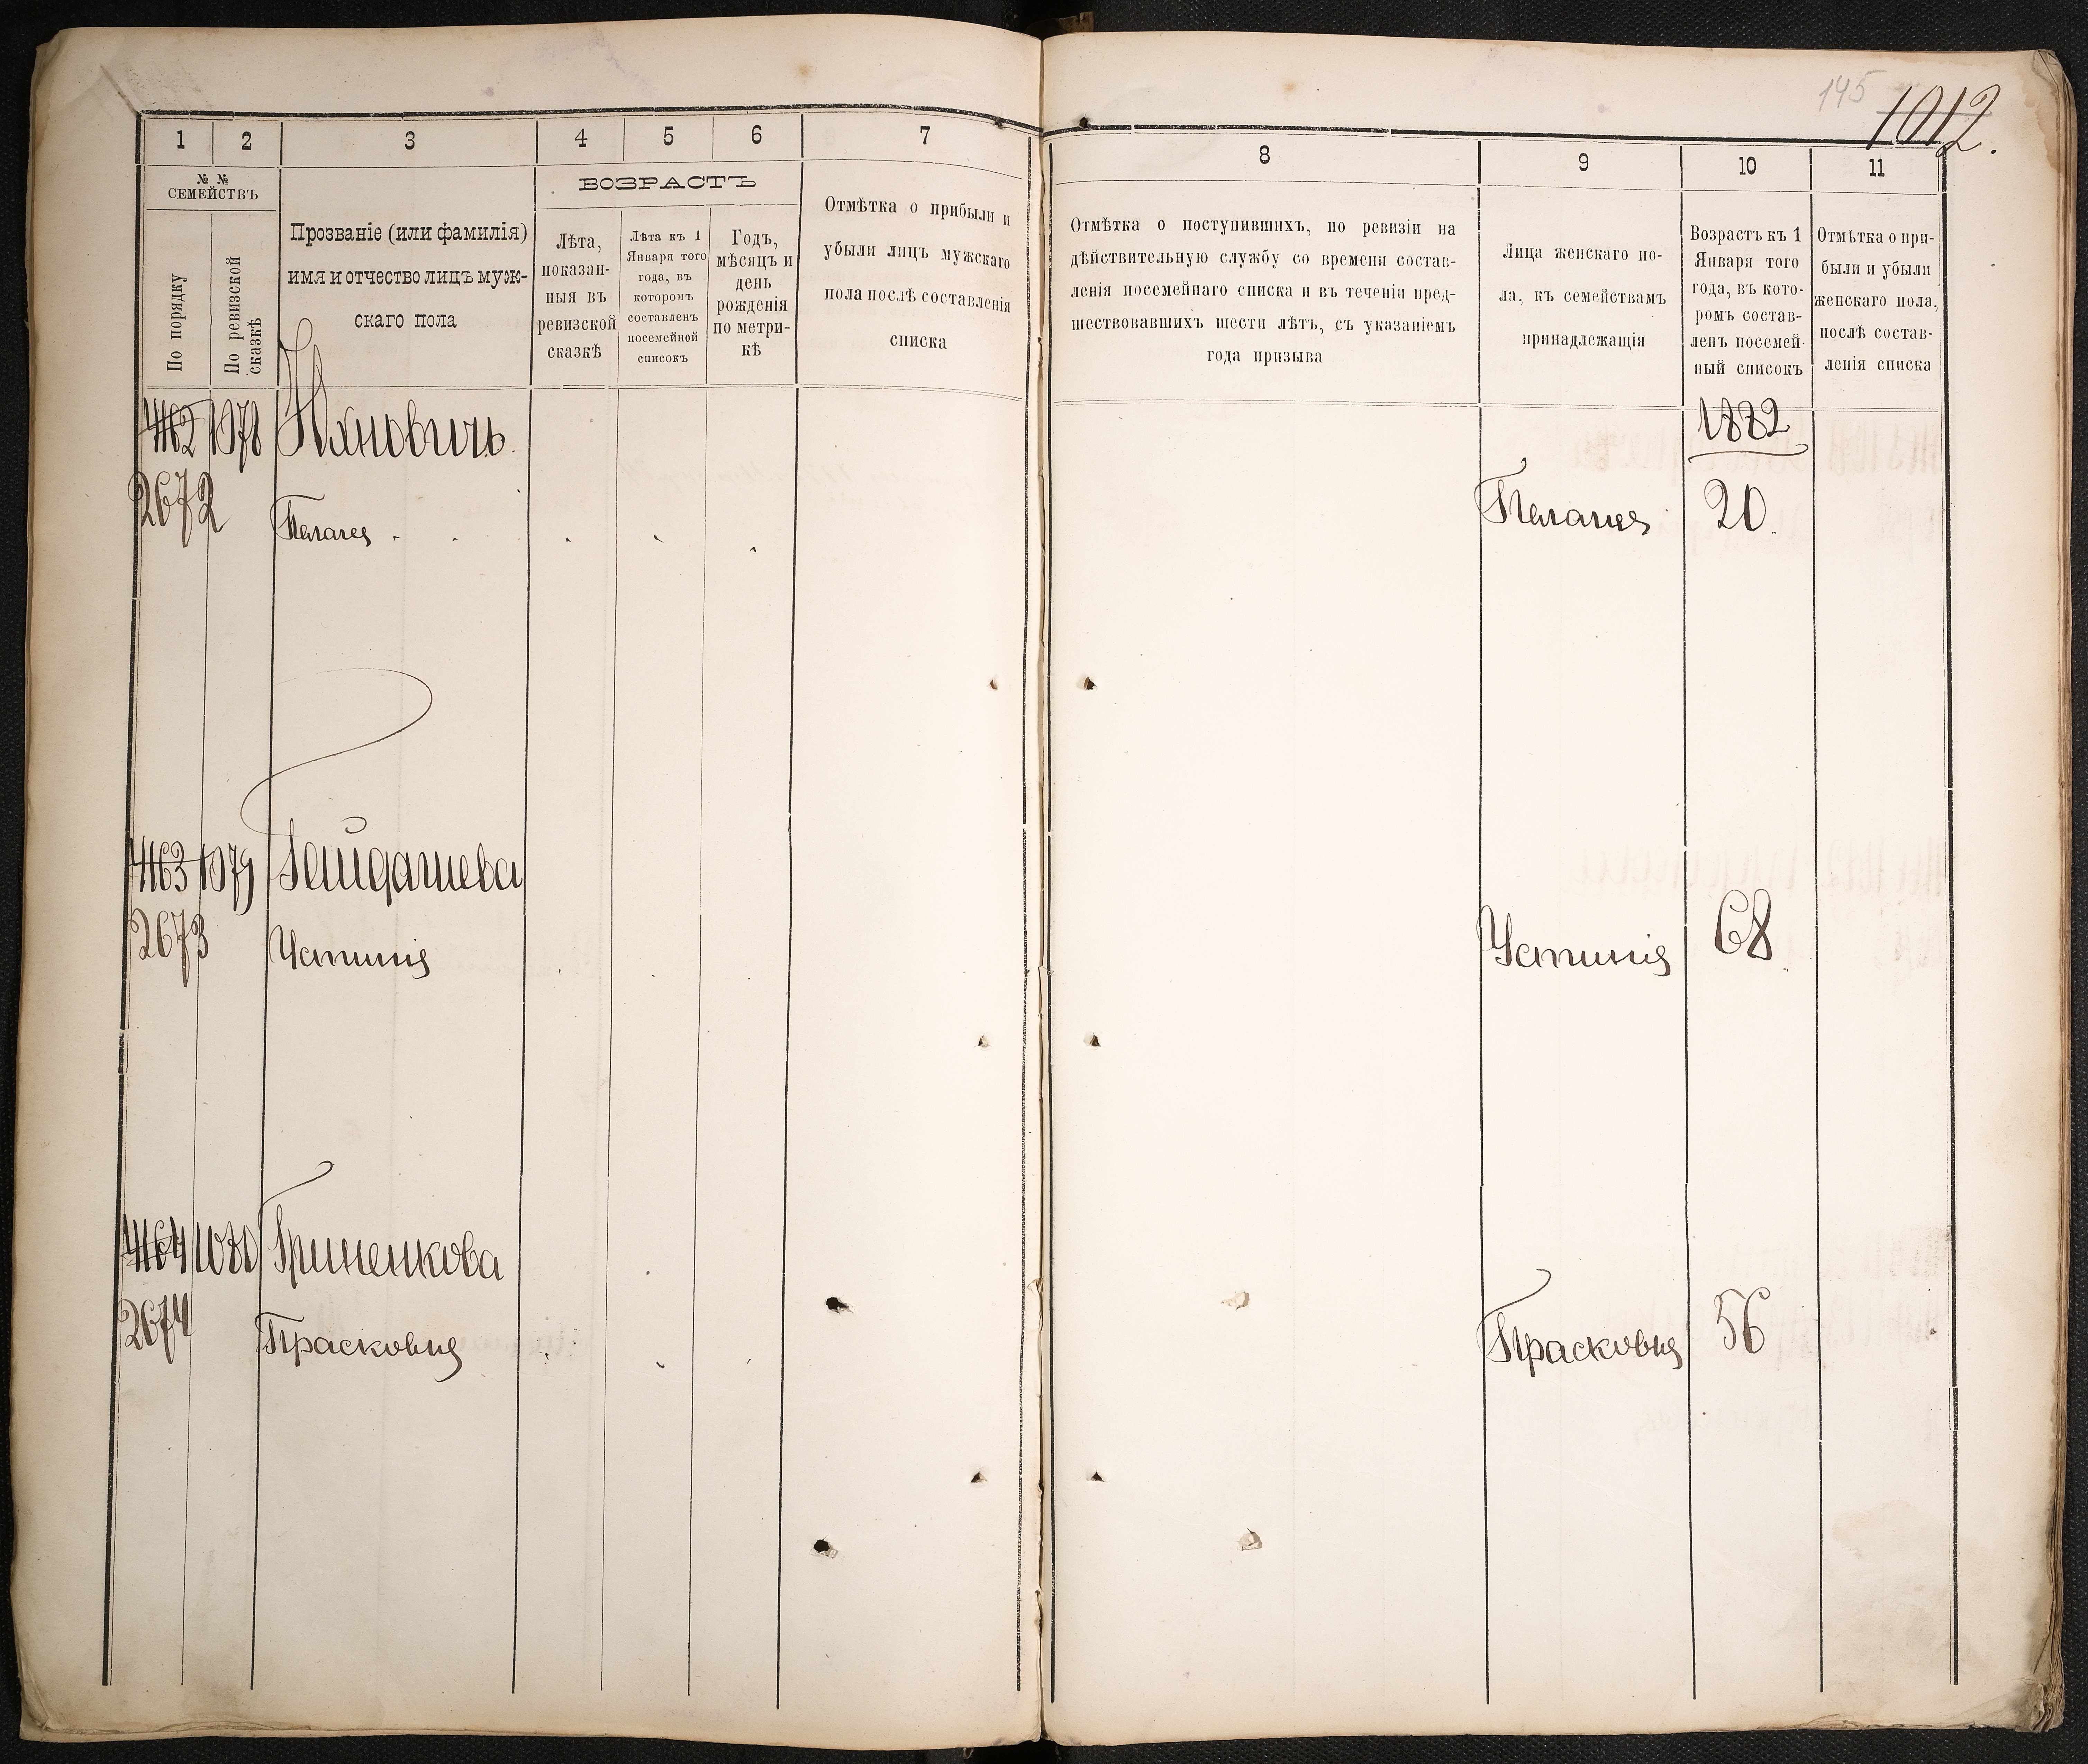 145
1012.
1 2 3 4 5 6 7
№ №
СЕМЕЙСТВЪ
По порядку
По ревизской
сказкѣ
Прозваніе (или фамилія)
имя и отчество лицъ муж-
скаго пола
ВОЗРАСТЪ
Лѣта,
показан-
ныя въ
ревизской
сказкѣ
Лѣта къ 1
Января того
года, въ
которомъ
составленъ
посемейной
списокъ
Годъ,
мѣсяцъ и
день
рожденія
по метри-
кѣ
Отмѣтка о прибыли и
убыли лицъ мужскаго
пола послѣ составленія
списка
8 9 10 11
Отмѣтка о поступившихъ, по ревизіи на
дѣйствительную службу со времени состав-
ленія посемейнаго списка и въ теченіи пред-
шествовавшихъ шести лѣтъ, съ указаніемъ
года призыва
Лица женскаго по-
ла, къ семействамъ
принадлежащія
Возрастъ къ 1
Января того
года, въ кото-
ромъ состав-
ленъ посемей-
ный списокъ
Отмѣтка о при-
были и убыли
женскаго пола,
послѣ состав-
ленія списка
1882
4162 1078
2672
Пелагея Пелагея 20.
4163 1079 Гайдашева
2673 Устинія Устинія 68
4164 1080 Гриненкова
2674 Прасковия Прасковия 56